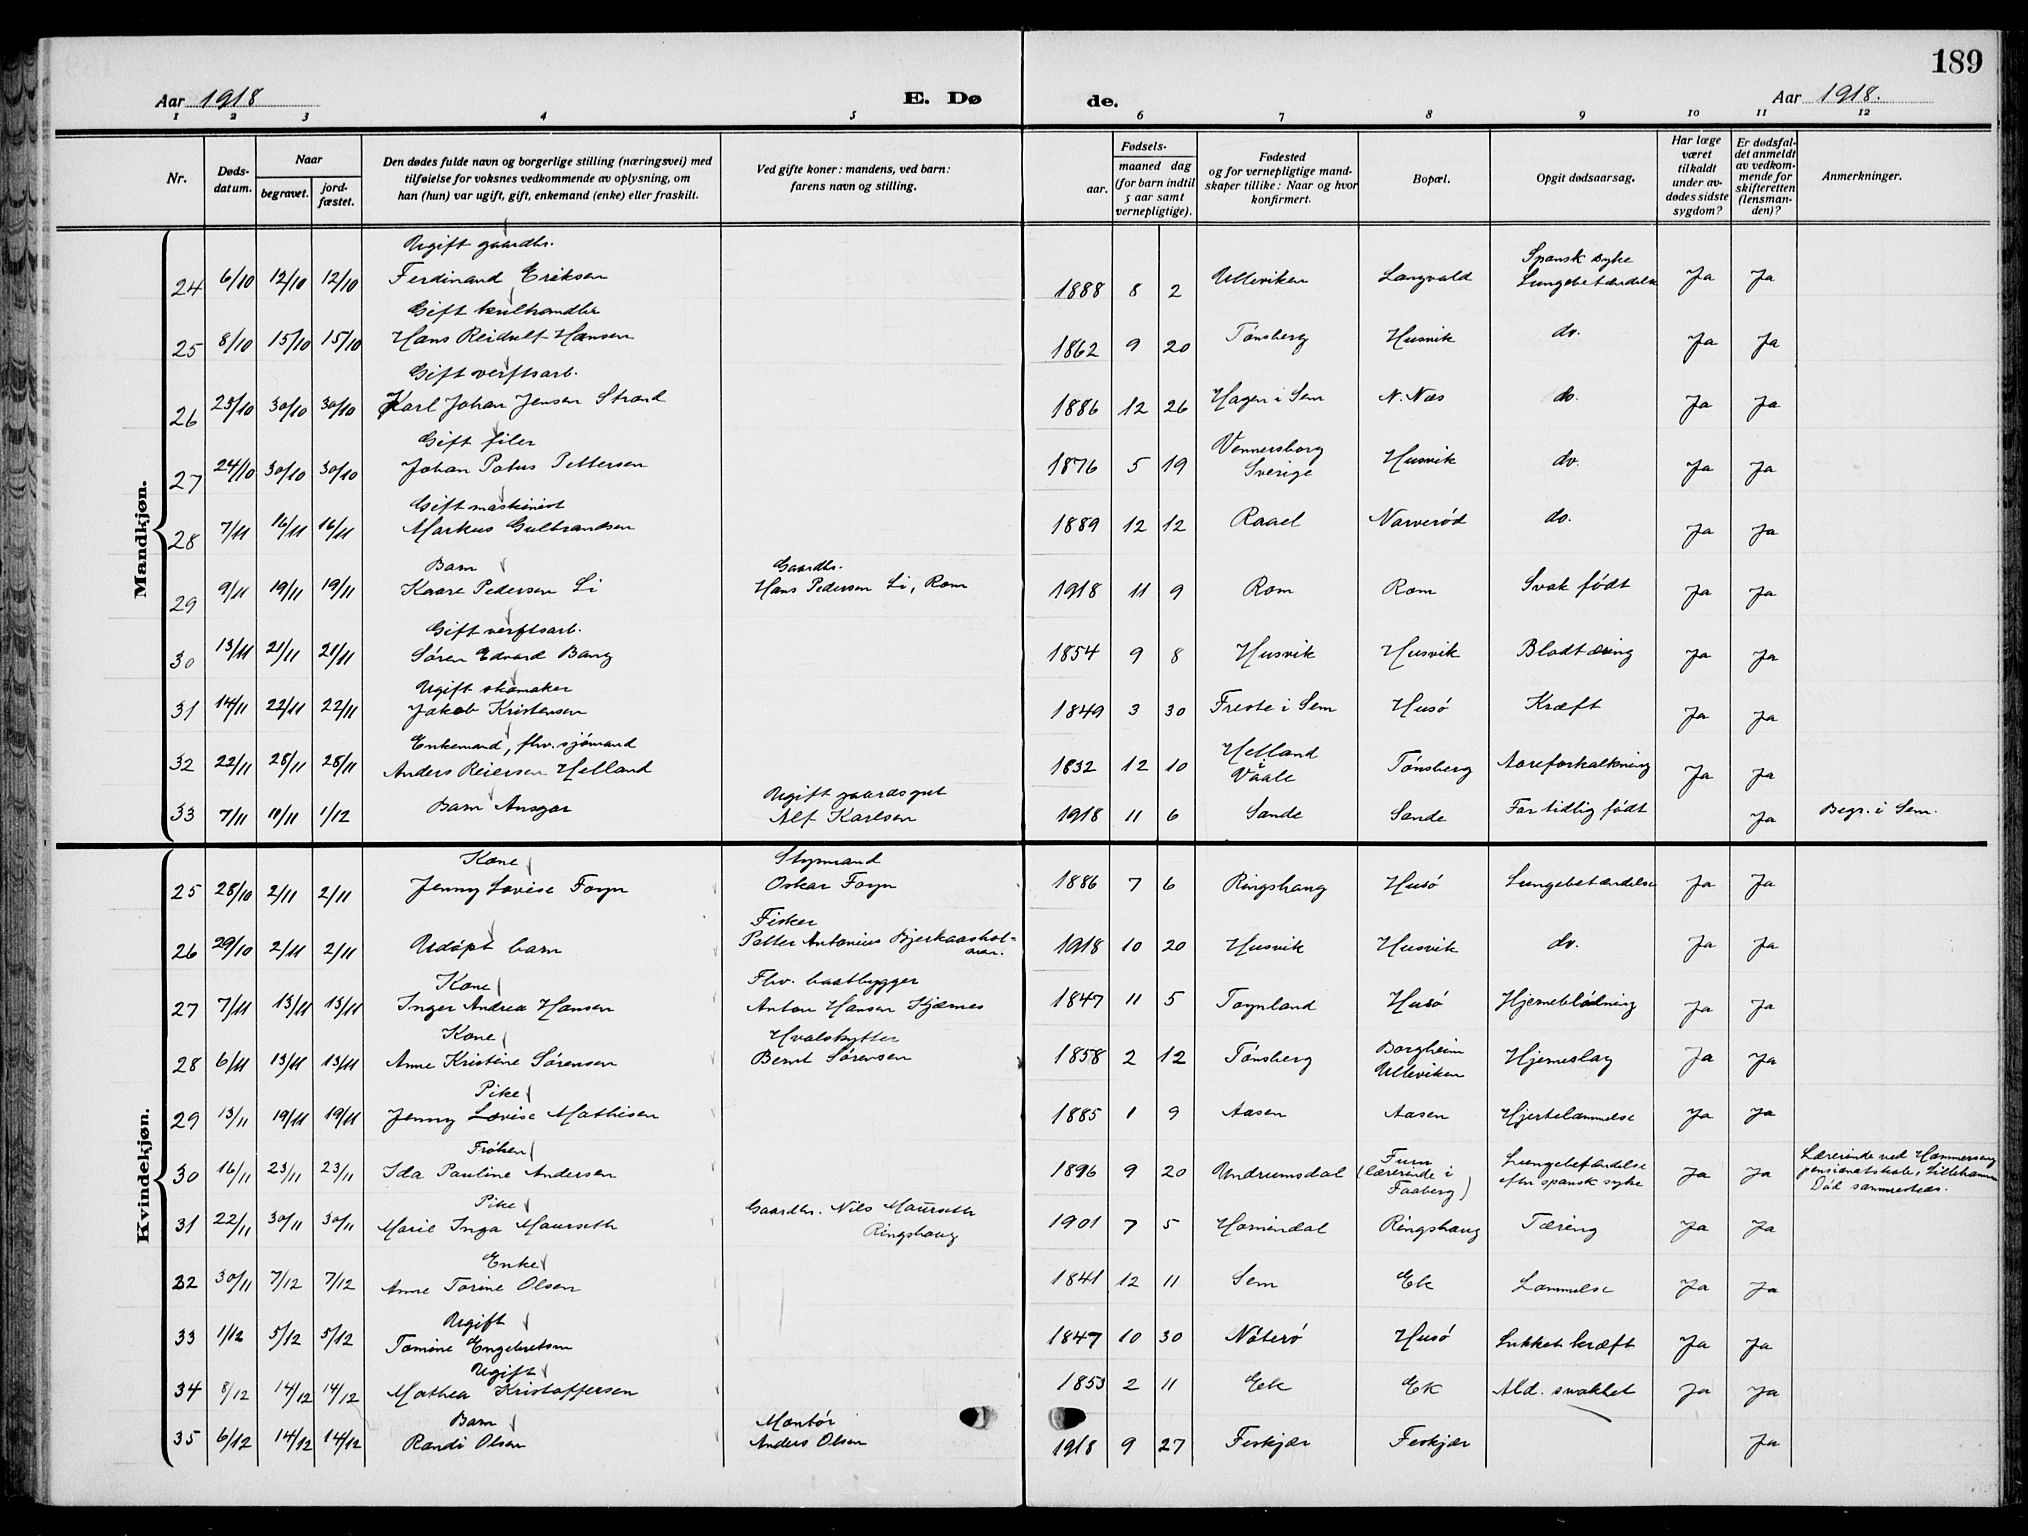 189
Aar 1918
E. Dø
de.
Aar 1918.
1 2 3 4 5 6 7 8 9 10 11 12
Nr.
Døds-
datum.
Naar
begravet.
jord-
fæstet.
Den dødes fulde navn og borgerlige stilling (næringsvei) med
tilføielse for voksnes vedkommende av oplysning, om
han (hun) var ugift, gift, enkemand (enke) eller fraskilt.
Ved gifte koner: mandens, ved barn:
farens navn og stilling.
Fødsels-
aar.
maaned dag
(for barn indtil
5 aar samt
vernepligtige).
Fødested
og for vernepligtige mand-
skaper tillike: Naar og hvor
konfirmert.
Bopæl.
Opgit dødsaarsag.
Har læge
været
tilkaldt
under av-
dødes sidste
sygdom?
Er dødsfal-
det anmeldt
av vedkom-
mende for
skifteretten
(lensman-
den)?
Anmerkninger.
Mandkjøn.
Ugift gaardbr. Spansk syke
24 6/10 12/10 12/10 Ferdinand Eriksen 1888 8 2 Ulleviken Langvald Lungebetændelse Ja Ja
Gift kulhandler
25 8/10 15/10 15/10 Hans Reidulf Hansen 1862 9 20 Tønsberg Husvik do. Ja Ja
Gift verftsarb.
26 23/10 30/10 30/10 Karl Johan Jensen Strand 1886 12 26 Hagen i Sem N. Næs do. Ja Ja
Gift filer Vennersborg
27 24/10 30/10 30/10 Johan Petrus Pettersen 1876 5 19 Sverige Husvik do. Ja Ja
Gift maskinist
28 7/11 16/11 16/11 Markus Gulbrandsen 1889 12 12 Raael Narverød do. Ja Ja
Barn Gaardbr.
29 9/11 19/11 19/11 Kaare Pedersen Li Hans Pedersen Li, Rom 1918 11 9 Rom Rom Svak født Ja Ja
Gift verftsarb.
30 13/11 21/11 21/11 Søren Edvard Bang 1854 9 8 Husvik Husvik Blodtæring Ja Ja
Ugift skomaker
31 14/11 22/11 22/11 Jakob Kristensen 1849 3 30 Freste i Sem Husø Kræft Ja Ja
Enkemand, fhv. sjømand Helland
32 22/11 28/11 28/11 Anders Reiersen Helland 1832 12 10 i Vaale Tønsberg Aareforkalkning Ja Ja
Ugift gaardsgut
33 7/11 11/11 1/12 Barn Ansgar Alf Karlsen 1918 11 6 Sande Sande For tidlig født Ja Begr. i Sem.
Kvindekjøn.
Kone Styrmand
25 28/10 2/11 2/11 Jenny Lovise Foyn Oskar Foyn 1886 7 6 Ringshaug Husø Lungebetændelse Ja Ja
Fisker
26 29/10 2/11 2/11 Udøpt barn Petter Antonius Bjerkaashol- 1918 10 20 Husvik Husvik do. Ja Ja
Kone Fhv. baatbygger
27 7/11 13/11 13/11 Inger Andrea Hansen Anton Hansen Hjærnes 1847 11 5 Foynland Husø Hjerneblødning Ja Ja
Kone Hvalskytter Borgheim
28 6/11 13/11 13/11 Anne Kristine Sørensen Bernt Sørensen 1858 2 12 Tønsberg Ulleviken Hjerneslag Ja Ja
Pike
29 13/11 19/11 19/11 Jenny Lovise Mathisen 1885 1 9 Aasen Aasen Hjertelammelse Ja Ja
Frøken Furu Lungebetændelse Lærerinde ved Hammerseng
30 16/11 23/11 23/11 Ida Pauline Andersen 1896 9 20 Undrumsdal (lærerinde i Faaberg) efter spansk syke Ja Ja pensionatskole, Lillehammer
Død sammesteds.
Pike Gaardbr. Nils Maurseth
31 22/11 30/11 30/11 Marie Inga Maurseth Ringshaug 1901 7 5 Hornindal Ringshaug Tæring Ja Ja
Enke
32 30/11 7/12 7/12 Anne Torine Olsen 1841 12 11 Sem Ek Lammelse Ja Ja
Ugift
33 1/12 5/12 5/12 Tomine Engebretsen 1847 10 30 Nøterø Husø Lukket kræft Ja Ja
Ugift
34 8/12 14/12 14/12 Mathea Kristoffersen 1853 2 11 Eek Ek Ald. svakhet Ja Ja
Barn Montør
35 6/12 14/12 14/12 Randi Olsen Anders Olsen 1918 9 27 Feskjær Feskjær Ja